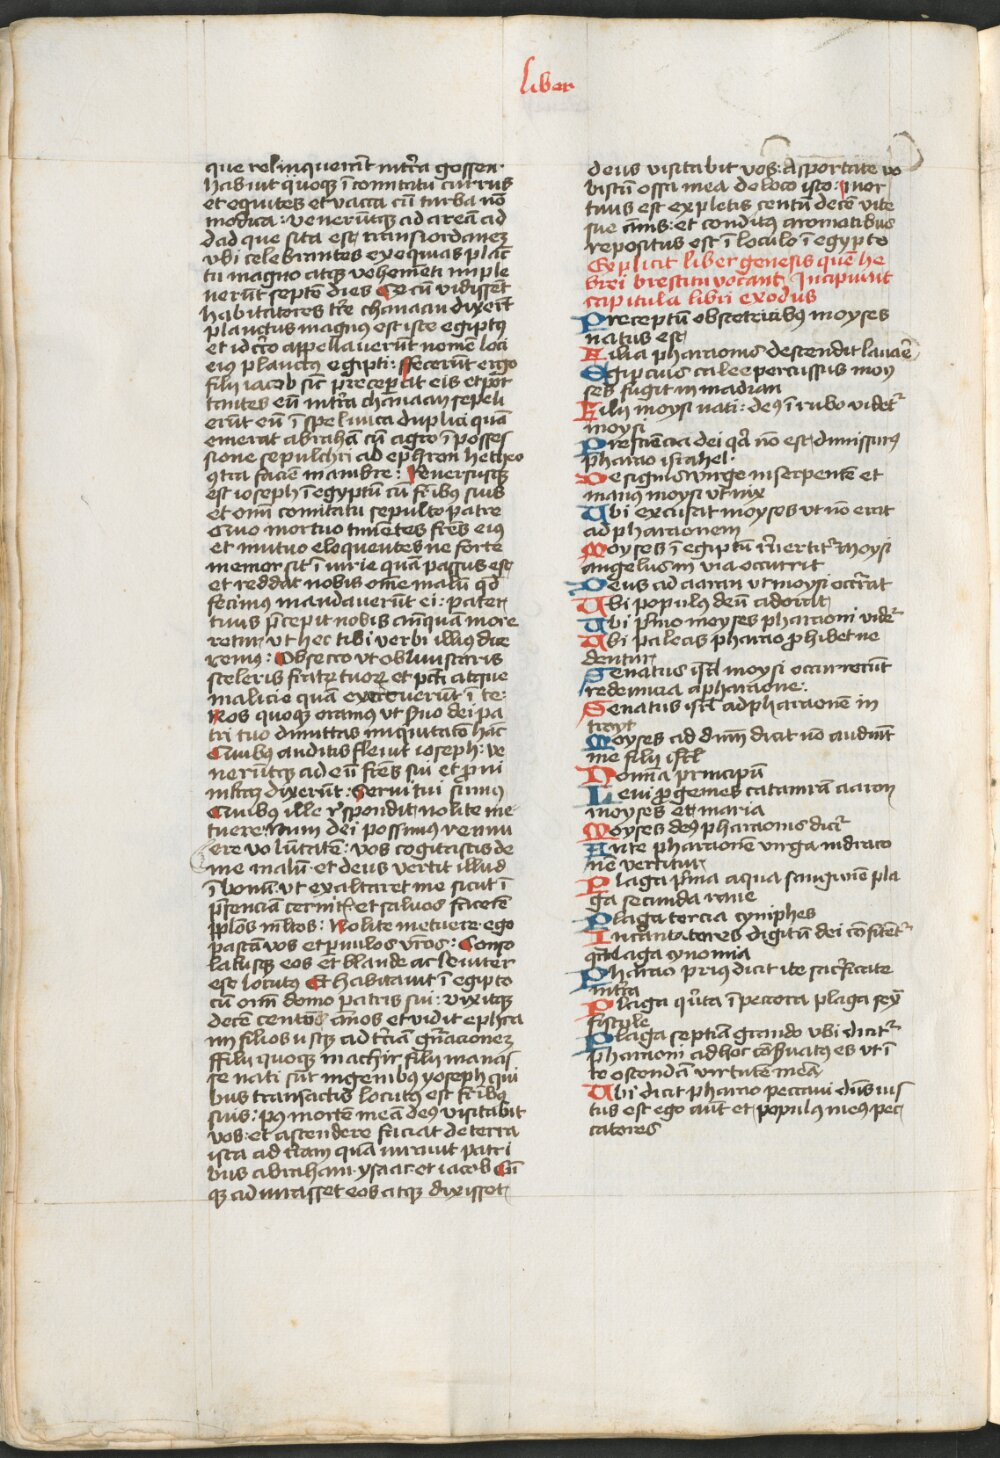 liber
que relinquerāt in tr̄ra gossen·
habuit quoqꝫ ī comitatu currus
et equites et vacca cū turba nō
modica : veneruntqꝫ ad aream ad
dad que sita est transiordanez
vbi celebrantes exequias planc
tu magno atqꝫ vehemeti imple
uerūt septē dies Qɔ cū vidissēt
habitatores tr̄e chanaan dixerūt
planctus magnus est iste egiptiꝰ
et idcīrco appellauerūt nomē loci
eiꝰ planctꝰ egipti : ffecerūt ergo
filij iacob sic̄ preceperat eis et por
tantes eū in tr̄ra chanaan sepeli
erūt eū ī spelunca duplici quā
emerat abrahā cū agro ī posses
sione sepulchri ad ephrem hetheo
ꝯtra faciem mambre : Reuersusqꝫ
est ioseph ī egyptū cū fr̄ibꝰ suis
et om̄i comitatu sepulto patre
Quo mortuo timentes frēs eiꝰ
et mutuo eloquentes ne forte
memor sit ī iurie quā passus est
et reddat nobis om̄e malū qd̄
fecimus mandauerūt ei : pater
tuus p̄cepit nobis anquam more
retur, vt hec tibi verbi illiꝰ dice
remꝰ : Obsecro vt obliuiscaris
sceleris fratrꝫ tuorꝫ et pcti atque
malicie quā exercuerūt ī te :
Nos quoqꝫ oramꝰ vt s̄uo dei pa
tri tuo dimittas iniquitatē hāc
Quibꝰ auditis fleuit ioseph : ve
nerūtqꝫ ad eū frēs sui et proni
in trāqꝫ dixerūt : Serui tui sumꝰ
Quibꝰ ille rn̄spondit, nolite me
tuere, num dei possimꝰ rennu
ere volūtatē : vos cogitastis de
me malū · et deus vertit illud
ī bonū · vt exaltaret me sicut ī
pn̄senciā cernit, · et saluos facerē
ppl̄os ml̄tos : Nolite metuere · ego
pascā vos et pruulos vr̄os : Conso
latusqꝫ eos et blande ac leuiter
est locutꝰ Et habitauit ī egipto
cū om̄i domo patris sui : vixitqꝫ
decē centos annos et vidit ephra
im filios usqꝫ ad tr̄ciā gn̄acionez
ffilij quoqꝫ machir filij manas
se nati sūt in genibꝰ yoseph qui
bus transactis locutꝰ est fr̄ibꝰ
suis : pꝰ mortē meā deꝰ visitabit
vos · et ascendere faciat de terra
ista ad tr̄am quā iurauit patri
bus abraham · ysaac · et iacob Cū
qꝫ adiurasset eos atqꝫ dixisset
deus visitabit vos : Asportate vo
biscū ossa mea de loco isto : mor
tuus est expletis centū decē vite
sue annis : et conditꝰ aromatibus
repositus est ī loculo ī egypto
Explicit liber genesis quē he
brei bresitiu vocant, Incipiunt
capitula libri exodus
Preceptū obstetricibꝰ moyses
natus est
Filia pharaonis descendit lauare
Egipcius calce percussus moy
ses fugit in madian
Filij moysi nati : deꝰ ī rubo videtʳ
moysi
Presciencia dei qā nō est, dimissurꝰ
pharao israhel ·
De signis virge in serpentē et
manꝰ moysi vt nix
Ubi excusat moyses vt nō erat
ad pharaonem
Moyses ī egiptū reuertitʳ moysi
angelus in via occurrit
Deus ad aaran vt moysi occurrat
Ubi populꝰ deū adorat
Ubi prīo moyses pharaoni videtʳ
Ubi paleas pharao prohibet ne
dentur
Senatus isrl̄ moysi occurrerūt
redeunti a pharaone :
Senatus isrl̄ ad pharaonē in
trauit
Moyses ad dn̄m dicit nō audiūt
me filij isrl̄
Nomina principū
Leui progenies catamrā aaron
moyses et, maria
Moyses deꝰ pharaonis dicitʳ
Ante pharaonē virga in draco
nē vertitur
Plaga prīma aqua sanguinē pla
ga secunda rane
Plaga tercia cyniphes
Incantatores digitū dei cōfitentʳ
qrta plaga cynomia
Pharao priꝰ dicit ite sacrificate
in tr̄ra
Plaga quīta ī peccora plaga sexta
fistule
Plaga septima grando vbi dicitʳ
pharaoni ad hoc cōseruatꝰ es vt ī
te ostendā virtutē meā
Ubi dicit pharao peccaui dn̄s ius
tus est ego aūt et, populꝰ meꝰ pec
catores